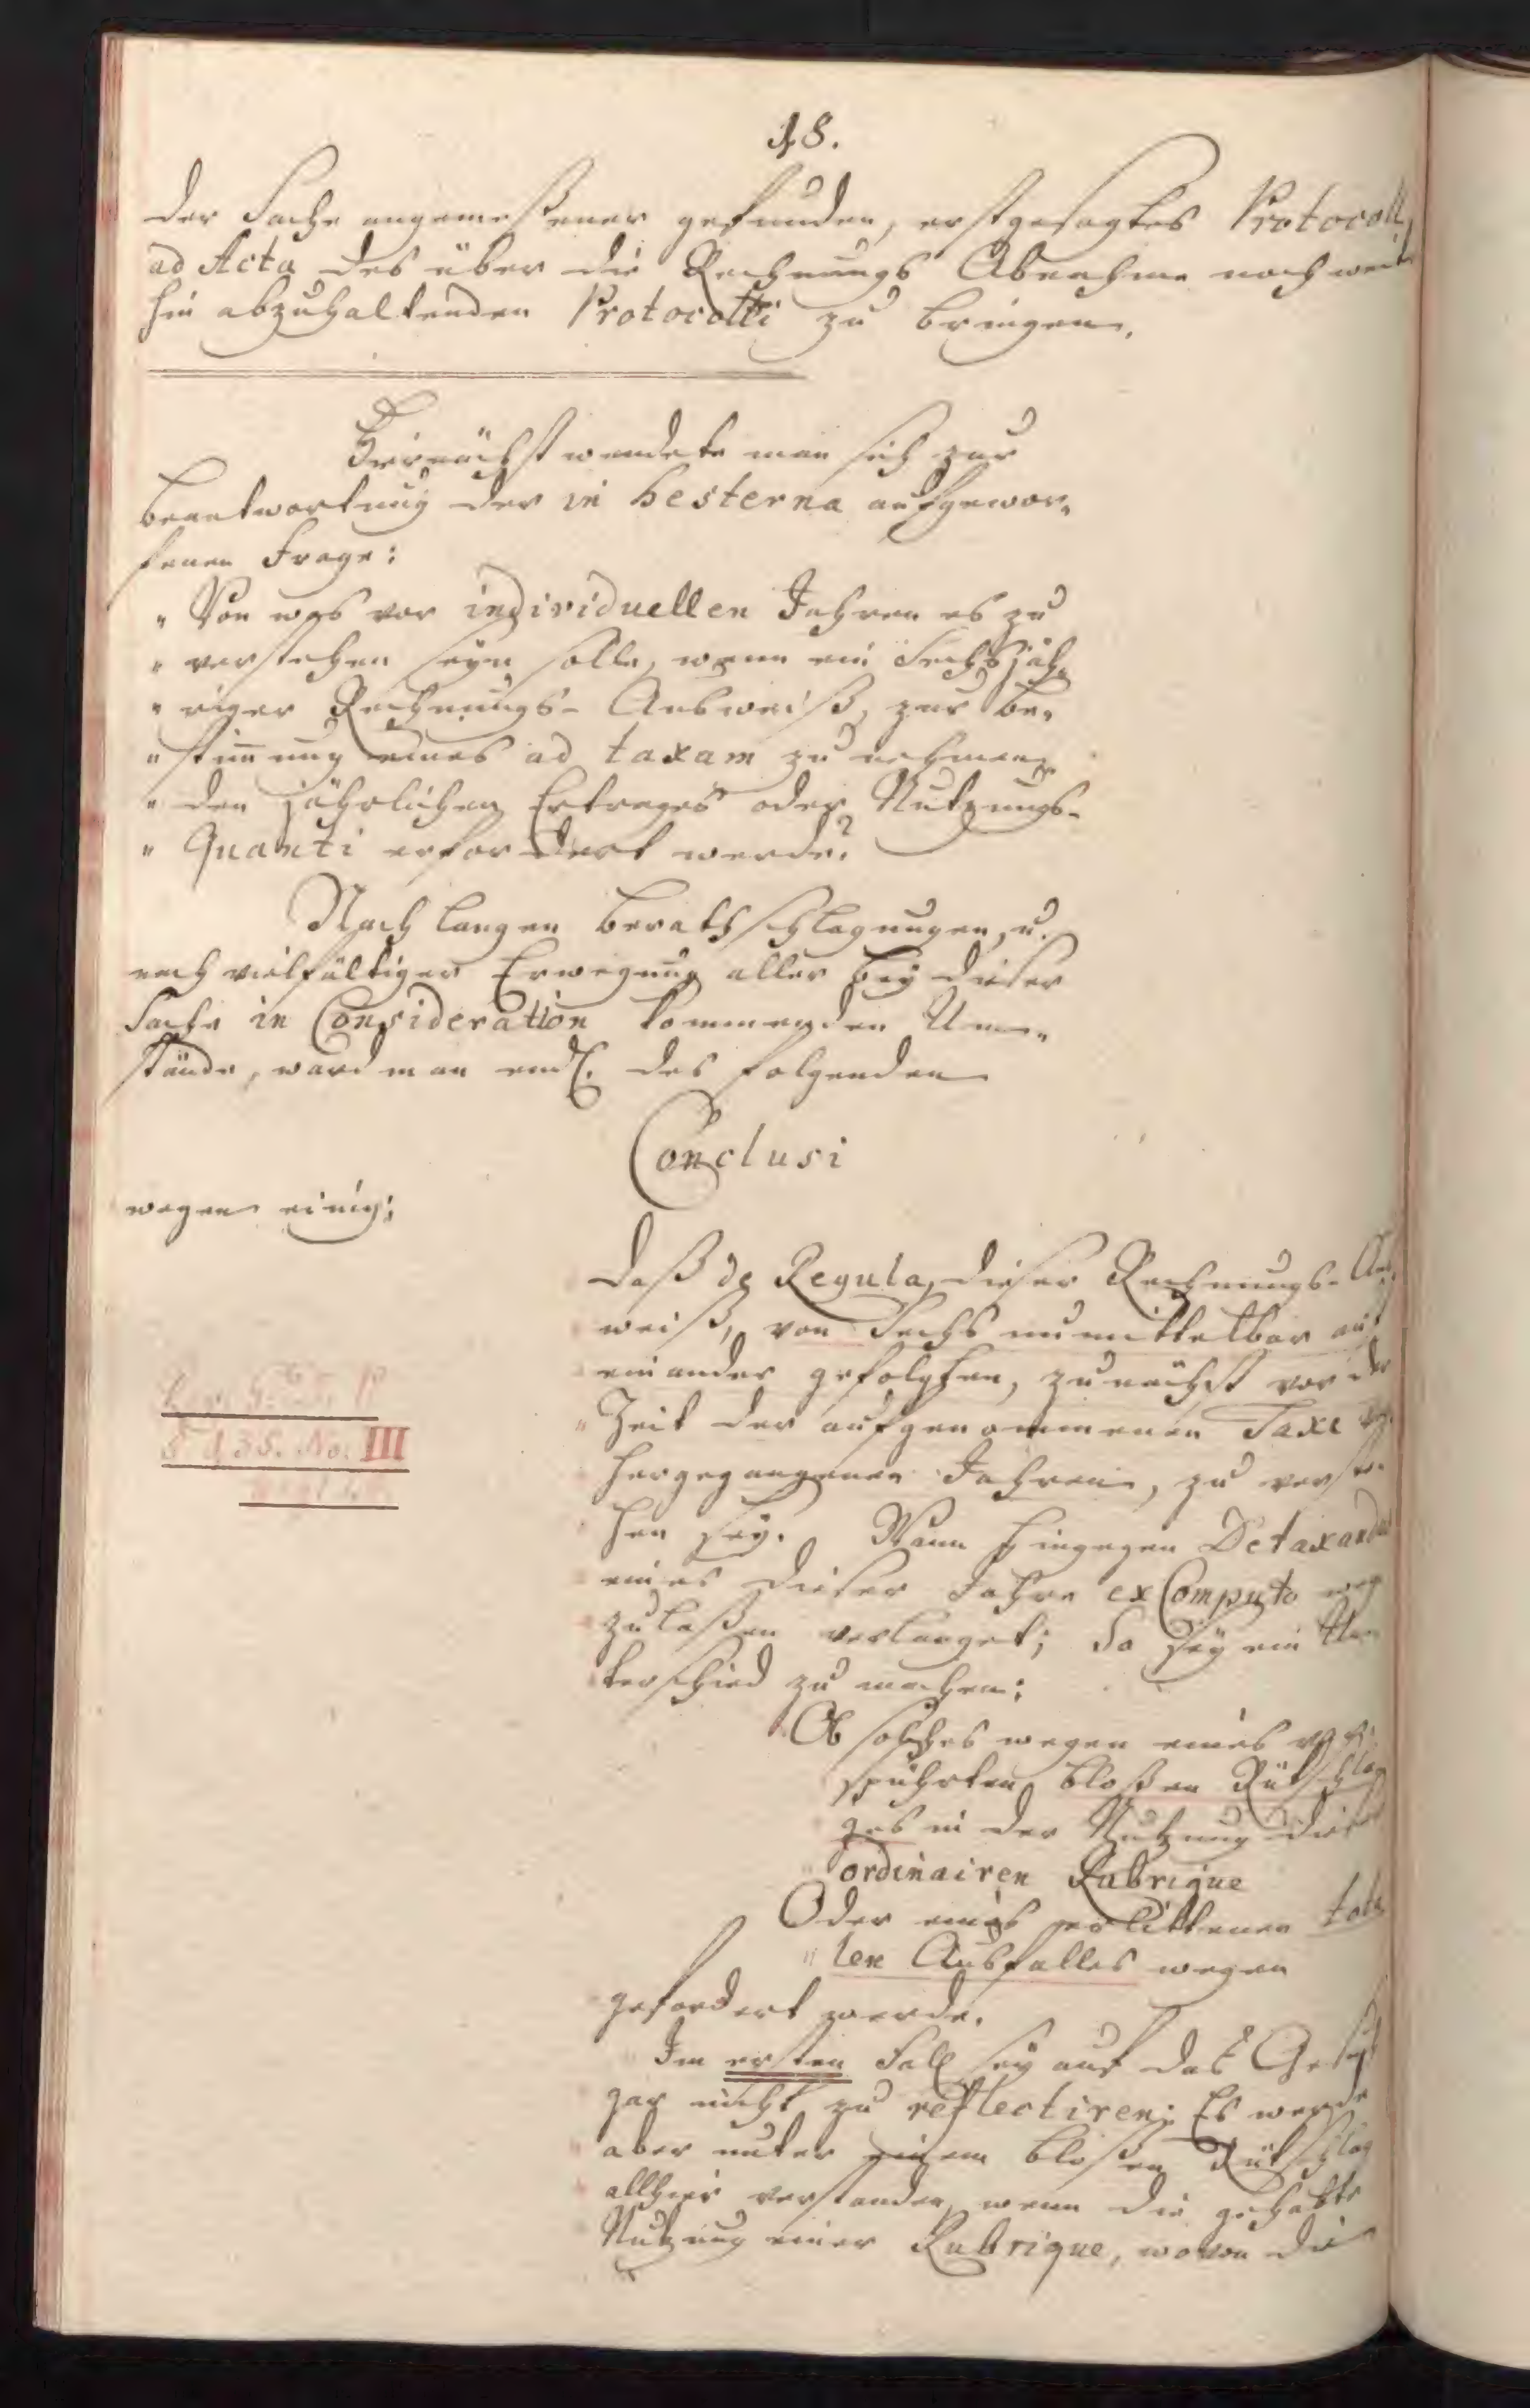 18.
der Sache angemeßener gefunden, erstgesagtes Protocoll,
ad Acta des über die Rechnungs Abnahme noch weit
hin abzuhaltenden Protocolli zu bringen.
Hiernächst wendete man sich zur
Beantwortung der in hesterna aufgewor„
fenen Frage:
„ Von was vor individuellen Jahren es zu
„ verstehen seyn solle, wenn ein Sechsjäh„
„ riger Rechnungs- Ausweiß, zur Be„
„ stim̄ung eines ad taxam zu nehmen„
„ den jährlichen Ertrages oder Nutzungs-
„ Quanti erfordert werde?
Nach langen Berathschlagungen, u.
nach vielfältiger Erwegung aller bey dieser
Sache in Consideration kommenden Um„
stände, ward man endl. des folgenden
Conclusi
wegen einig;
Daß de Regula, dieser Rechnungs- Aus
weiß, von Sechs unmittelbar auf
einander gefolgten, zunächst vor der
Zeit der aufgenommenen Taxe
hergegangenen Jahren, zu verste„
hen sey. Wann hingegen Detaxandus
eines dieser Jahre ex Computo weg
zulaßen verlanget; So sey ein Un
terschied zu machen:
§ 135. No. III
Ob solches wegen eines
spührten bloßen Rükschla
ges in der Nutzung dieser
ordinairen Rubrique
Oder eines erlittenen tota
len Ausfalles wegen
gefordert werde.
Im ersten Fall sey auf das Gesuch
gar nicht zu reflectiren; Es werde
aber unter einem bloßen Rükschlag
allhier verstanden, wenn die gehabte
Nutzung einer Rubrique, wovon die